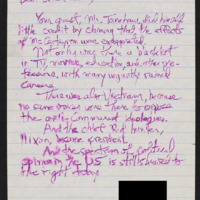 Your guest, Mr. Tanenhaus, did himself
little credit by claiming that the effects
of McCarthyism were exaggerated.
Not only was there a blacklist
in TV, movies, education, and other pro-
fessions, with many unjustly ruined
careers.
This was also Unstinting, because
no one was there to oppose
the anti-Communist ideologues.
And the chief Red hunter,
Nixon, became president.
And the spectrum of political
opinion in the US is still skewed to
the right today